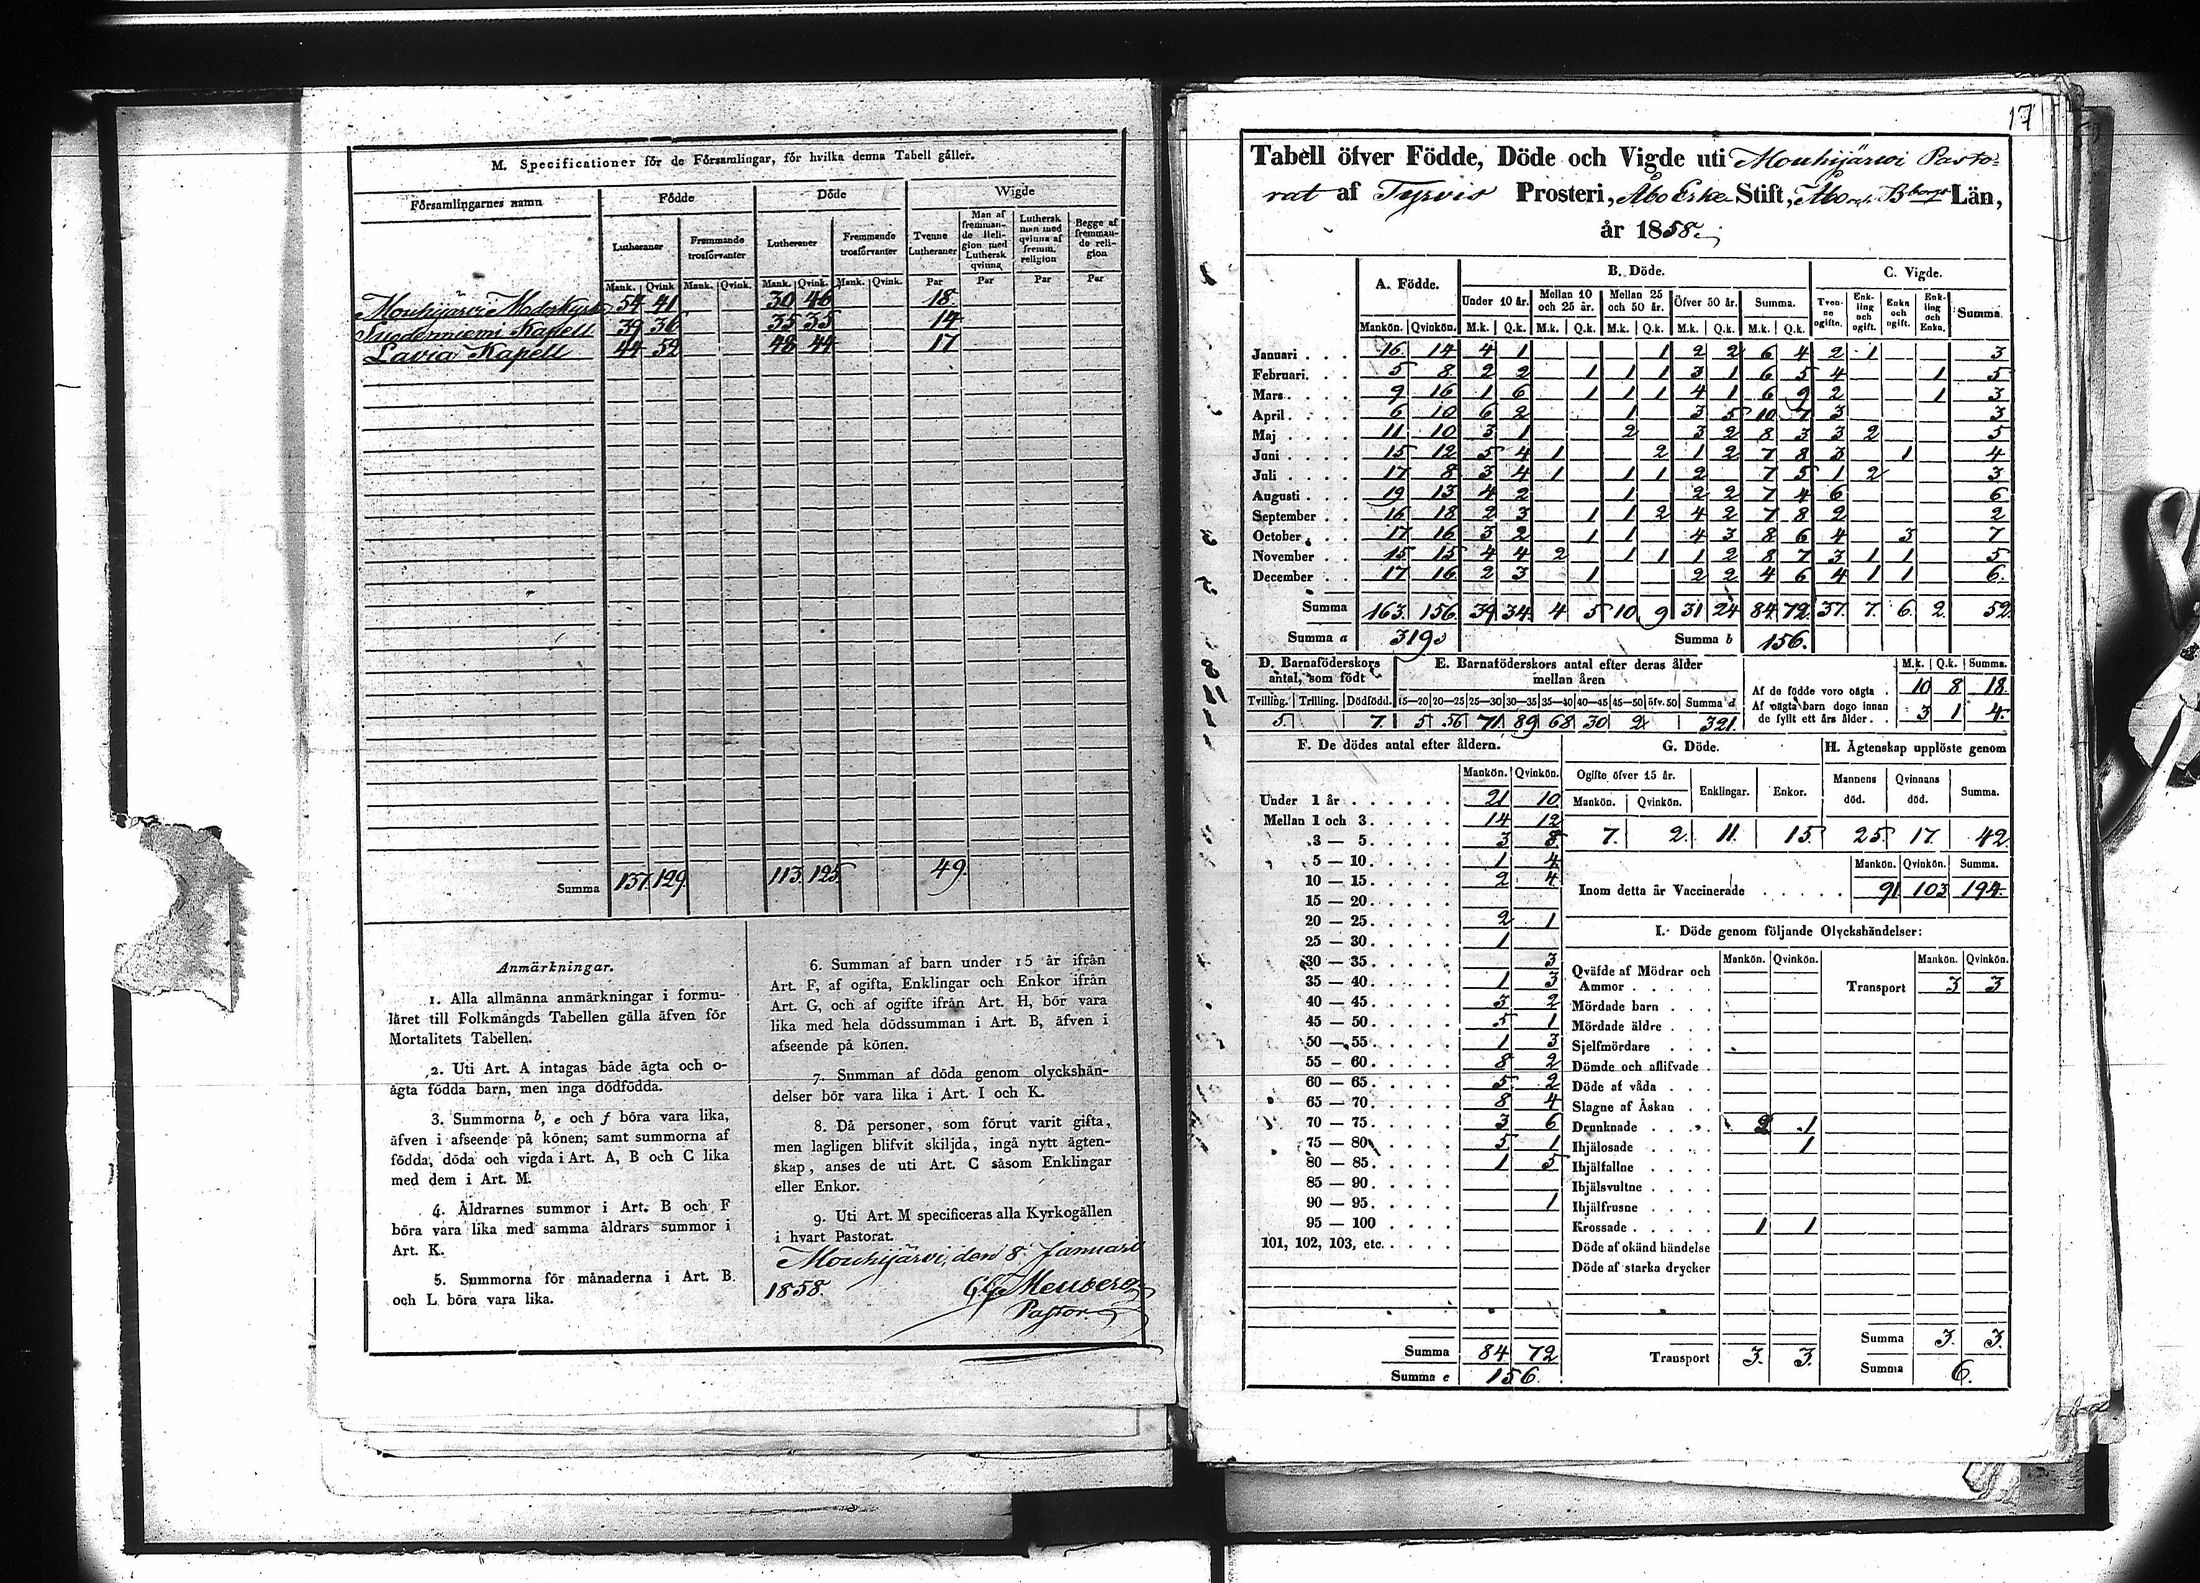 M. Specificationer för de Församlingar, för hvilka denna Tabell gäller.
Församlingarnes namn | Födde | Döde | Wigde
Lutheraner | Fremmande trosförvanter | Lutheraner | Fremmande trosförvanter | Tvenne Lutheraner | Man af fremmande Religion med Luthersk qvinna | Luthersk man med qvinna af fremm. religion | Begge af fremmande religion
Mank. | Qvink. | Mank. | Qvink. | Mank. | Qvink. | Mank. | Qvink. | Par | Par | Par | Par
Mouhijärvi Moderkyrk 54 41 30 46 18.
Suodenniemi Kapell 39 36 35 35 14
Lavia Kapell 44 52 48 44 17
Summa 137. 129. 113. 125. 49.
Anmärkningar.
1. Alla allmänna anmärkningar i formu-
läret till Folkmängds Tabellen gälla äfven för
Mortalitets Tabellen.
2. Uti Art. A intagas både ägta och o-
ägta födda barn, men inga dödfödda.
3. Summorna b, e och f böra vara lika,
äfven i afseende på könen; samt summorna af
födda, döda och vigda i Art. A, B och C lika
med dem i Art. M.
4. Åldrarnes summor i Art. B och F
böra vara lika med samma åldrars summor i
Art. K.
5. Summorna för månaderna i Art. B.
och L böra vara lika.
6. Summan af barn under 15 år ifrån
Art. F, af ogifta, Enklingar och Enkor ifrån
Art. G, och af ogifte ifrån Art. H, bör vara
lika med hela dödssumman i Art. B, äfven i
afseende på könen.
7. Summan af döda genom olyckshän-
delser bör vara lika i Art. I och K.
8. Då personer, som förut varit gifta,
men lagligen blifvit skiljda, ingå nytt ägten-
skap, anses de uti Art. C såsom Enklingar
eller Enkor.
9. Uti Art. M specificeras alla Kyrkogällen
i hvart Pastorat.
Mouhijärvi, den 8. Januari
1858.
Pastor.
17
Tabell öfver Födde, Döde och Vigde uti Mouhijärvi Pasto-
rat af Tyrvis Prosteri, Åbo Erke Stift, Åbo och Bborgs Län,
år 1858.
A. Födde. | B. Döde. | C. Vigde.
Under 10 år. | Mellan 10 och 25 år. | Mellan 25 och 50 år. | Öfver 50 år. | Summa. | Tvenne ogifte. | Enkling och ogift. | Enka och ogift. | Enkling och Enka. | Summa.
Mankön. | Qvinkön. | M.k. | Q.k. | M.k. | Q.k. | M.k. | Q.k. | M.k. | Q.k. | M.k. | Q.k.
Januari . . . 16. 14 4 1 1 2 2 6 4 2 1 3
Februari. . . 5 8 2 2 1 1 1 3 1 6 5 4 1 5
Mars . . . . 9 16 1 6 1 1 1 4 1 6 9 2 1 3
April . . . . 6 10 6 2 1 3 5 10 7 3 3
Maj . . . . 11 10 3 1 2 3 2 8 3 3 2 5
Juni . . . . 15 12 5 4 1 2 1 2 7 8 3 1 4
Juli . . . . 17 8 3 4 1 1 1 2 7 5 1 2 3
Augusti . . . 19 13 4 2 1 2 2 7 4 6 6
September . . 16 18 2 3 1 1 2 4 2 7 8 2 2
October . . . 17 16 3 2 1 1 4 3 8 6 4 3 7
November . . 15 15 4 4 2 1 1 1 2 8 7 3 1 1 5
December . . 17 16 2 3 1 2 2 4 6 4 1 1 6.
Summa 163. 156. 39 34. 4 5 10 9 31 24 84 72. 37. 7. 6. 2. 52
Summa a 319. Summa b 156.
D. Barnaföderskors antal, som födt | E. Barnaföderskors antal efter deras ålder mellan åren | M.k. | Q.k. | Summa.
Tvilling. | Trilling. | Dödfödd. | 15—20 | 20—25 | 25—30 | 30—35 | 35—40 | 40—45 | 45—50 | öfv. 50 | Summa d
5. 7. 5 56 71 89 68 30 2 321.
Af de födde voro oägta . 10 8 18.
Af oägta barn dogo innan
de fyllt ett års ålder . . 3 1 4.
F. De dödes antal efter åldern.
Mankön. | Qvinkön.
Under 1 år . . . . . . 21 10
Mellan 1 och 3. . . . . 14 12
3 — 5. . . . . 3 8
5 — 10. . . . . 1 4
10 — 15. . . . . 2 4
15 — 20. . . . .
20 — 25. . . . . 2 1
25 — 30. . . . . 1
30 — 35. . . . . 3
35 — 40. . . . . 1 3
40 — 45. . . . . 3 2
45 — 50. . . . . 5 1
50 — 55. . . . . 1 3
55 — 60. . . . . 8 2
60 — 65. . . . . 5 2
65 — 70. . . . . 8 4
70 — 75. . . . . 3 6
75 — 80. . . . . 5 1
80 — 85. . . . . 1 5
85 — 90. . . . .
90 — 95. . . . . 1
95 — 100 . . . .
101, 102, 103, etc. . . . .
Summa 84 72
Summa e 156.
G. Döde. | H. Ägtenskap upplöste genom
Ogifte öfver 15 år. | Enklingar. | Enkor. | Mannens död. | Qvinnans död. | Summa.
Mankön. | Qvinkön.
7. 2. 11. 15. 25. 17. 42
Mankön. | Qvinkön. | Summa.
Inom detta år Vaccinerade . . . . . 91 103 194.
I. Döde genom följande Olyckshändelser:
Mankön. | Qvinkön. | Mankön. | Qvinkön.
Qväfde af Mödrar och
Ammor . . . . . Transport 3 3
Mördade barn . . .
Mördade äldre . . .
Sjelfmördare . . .
Dömde och aflifvade .
Döde af våda . . .
Slagne af Åskan . .
Drunknade . . . . 2 1
Ihjälosade . . . . 1
Ihjälfallne . . . .
Ihjälsvultne . . . .
Ihjälfrusne . . . .
Krossade . . . . . 1 1
Döde af okänd händelse
Döde af starka drycker
Summa 3. 3.
Transport 3. 3.
Summa 6.